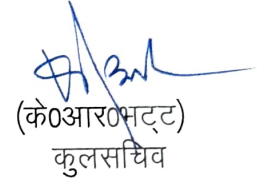 (के0आर0भट्ट)
कुलसचिव